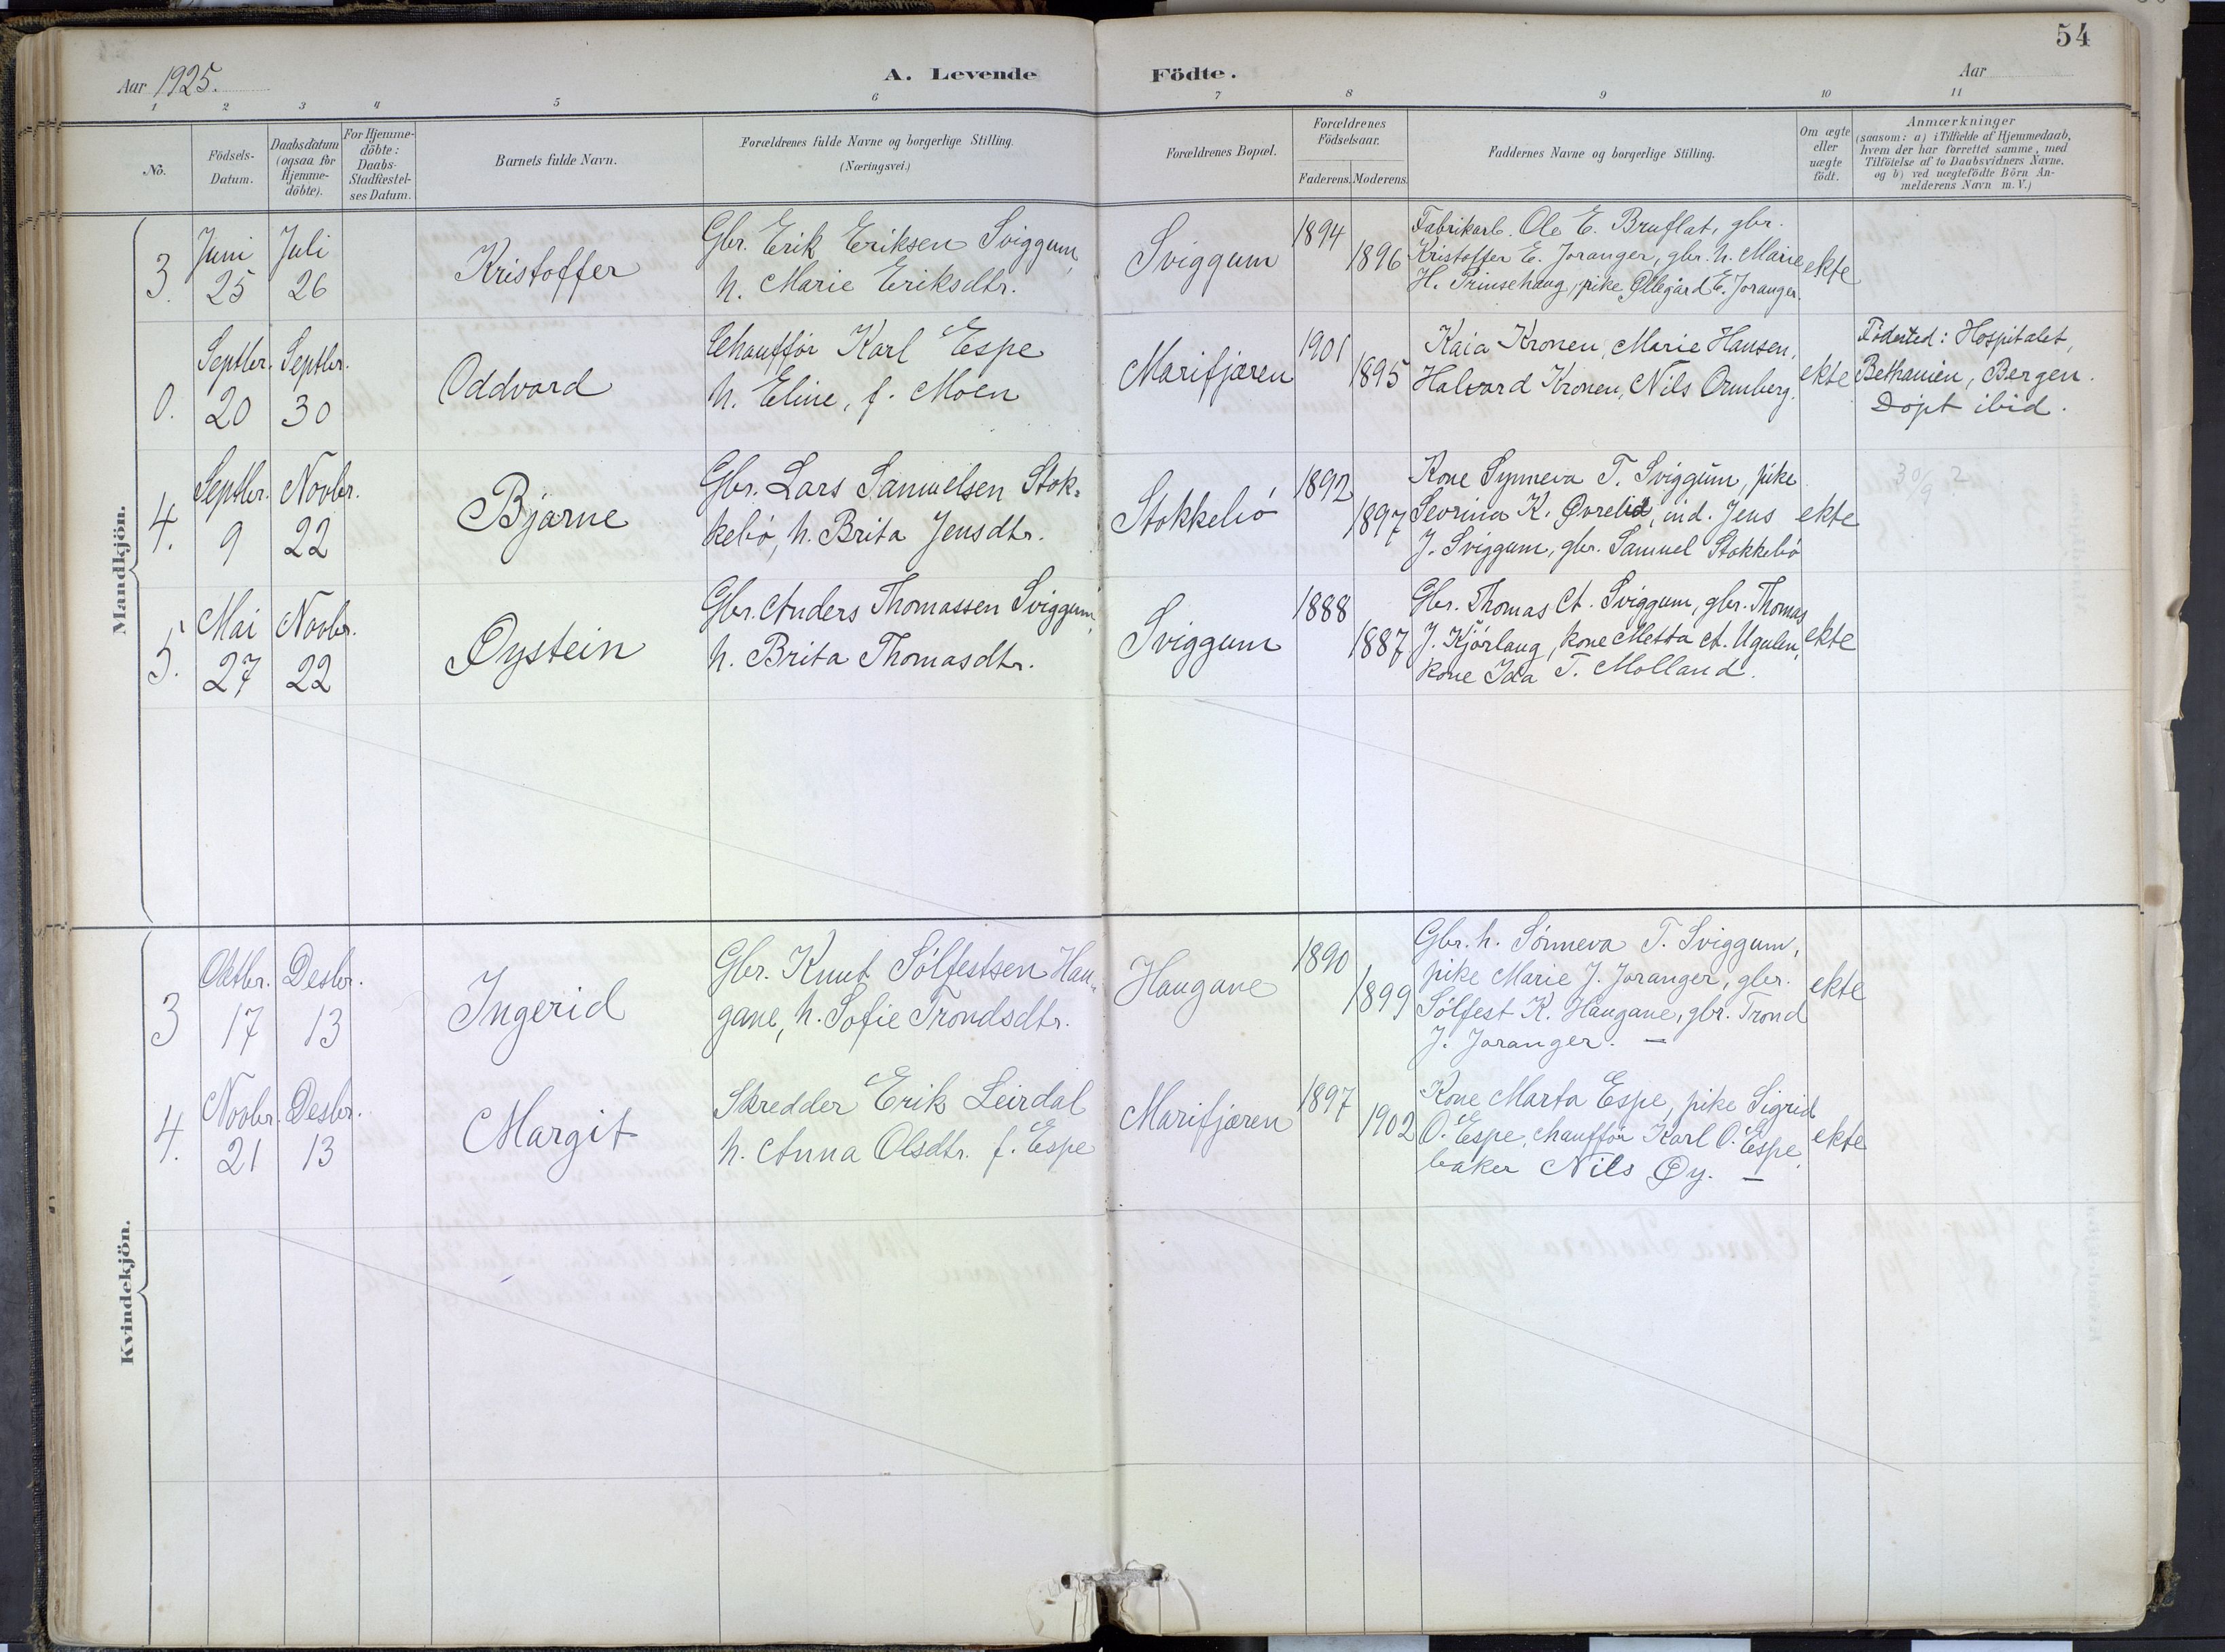 54
Aar 1925.
A. Levende Födte.
Aar
1 2 3 4 5 6 7 8 9 10 11
No.
Födsels-
Datum.
Daabsdatum
(ogsaa for
Hjemme-
döbte).
For Hjemme-
döbte:
Daabs-
Stadfæstel-
ses Datum.
Barnets fulde Navn.
Forældrenes fulde Navne og borgerlige Stilling.
(Næringsvei.)
Forældrenes Bopæl.
Forældrenes
Födselsaar.
Faderens. Moderens.
Faddernes Navne og borgerlige Stilling.
Om ægte
eller
uægte
födt.
Anmærkninger
(saasom: a) i Tilfælde af Hjemmedaab,
hvem der har forrettet samme, med
Tilföielse af to Daabsvidners Navne,
og b) ved uægtefödte Börn An-
melderens Navn m. V.)
Mandkjön.
3.
Juni
25
Juli
26
Kristoffer
Gbr. Erik Eriksen Sviggum,
h. Marie Eriksdtr.
Sviggum
1894
1896
Fabrikarb. Ole E. Bruflat, gbr.
Kristoffer E. Joranger, gbr. h. Marie
H. Prinsehaug, pike Øllegård E. Joranger.
ekte
0.
Septbr.
20
Septbr.
30
Oddvard
Chaufför Karl Espe
h. Eline, f. Moen
Marifjæren
1901
1895
Kaia Kronen, Marie Hansen,
Halvard Kronen, Nils Ormberg.
ekte
Födested: Hospitalet,
Bethanien, Bergen.
Döpt ibid.
4.
Septbr.
9
Novbr.
22
Bjarne
Gbr. Lars Samuelsen Stok-
kebö, h. Brita Jensdtr.
Stokkebö
1892
1897
Kone Synneva T. Sviggum, pike
Sevrina K. Øvrelid, ind. Jens
J. Sviggum, gbr. Samuel Stokkebö
ekte
30/9 2
5.
Mai
27
Novbr.
22
Øystein
Gbr. Anders Thomassen Sviggum,
h. Brita Thomasdtr.
Sviggum
1888
1887
Gbr. Thomas A. Sviggum, gbr. Thomas
J. Kjörlaug, kone Metta A. Ugulen,
kone Ida T. Molland.
ekte
Kvindekjön.
3
Oktbr.
17
Desbr.
13
Ingerid
Gbr. Knut Sölfestsen Hau-
gane, h. Sofie Trondsdtr.
Haugane
1890
1899
Gbr. h. Sönneva T. Sviggum,
pike Marie J. Joranger, gbr.
Sölfest K. Haugane, gbr. Trond
J. Joranger. —
ekte
4.
Novbr.
21
Desbr.
13
Margit
Skredder Erik Leirdal
h. Anna Olsdtr. f. Espe
Marifjæren
1897
1902
Kone Marta Espe, pike Sigrid
O. Espe, chaufför Karl O. Espe,
baker Nils Øy. —
ekte